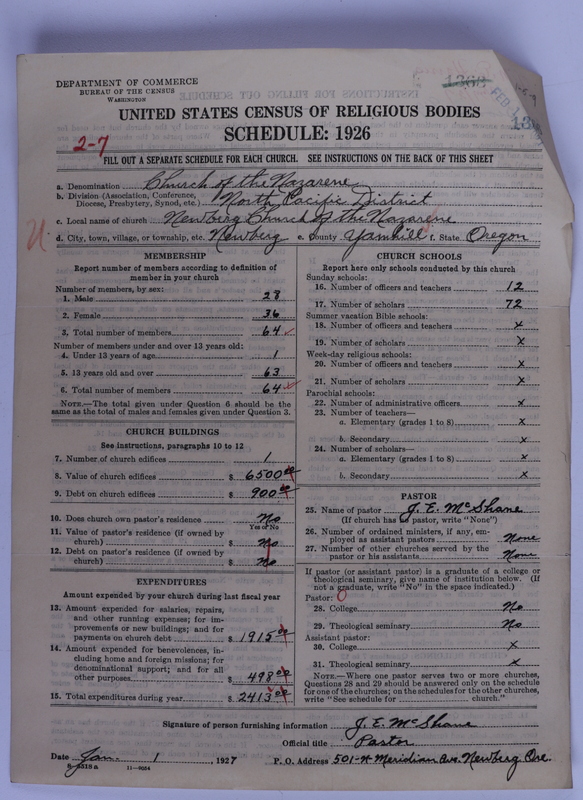 DEPARTMENT OF COMMERCE
BUREAU OF THE CENSUS
WASHINGTON
1366
UNITED STATES CENSUS OF RELIGIOUS BODIES
SCHEDULE: 1926
2-7
FILL OUT A SEPARATE SCHEDULE FOR EACH CHURCH. SEE INSTRUCTIONS ON THE BACK OF THIS SHEET
a. Denomination Church of the Nazarene
b. Division (Association, Conference, Diocese, Presbytery, Synod, etc.) North Pacific District
c. Local name of church Newberg Church of the Nazarene
d. City, town, village, or township, etc. Newberg e. County Yamhill f. State Oregon
MEMBERSHIP
Report number of members according to definition of
member in your church
Number of members, by sex:
1. Male 28
2. Female 36
3. Total number of members 64
Number of members under and over 13 years old:
4. Under 13 years of age 1
5. 13 years old and over 63
6. Total number of members 64
NOTE.—The total given under Question 6 should be
same as the total of males and females given under Question 3.
CHURCH BUILDINGS
See instructions, paragraphs 10 to 12
7. Number of church edifices 1
8. Value of church edifices $ 6500 00
9. Debt on church edifices $ 900 00
10. Does church own pastor's residence No
Yes or No
11. Value of pastor's residence (if owned by
church) $ no
12. Debt on pastor's residence (if owned by
church) $ no
EXPENDITURES
Amount expended by your church during last fiscal year
13. Amount expended for salaries, repairs,
and other running expenses; for im-
provements or new buildings; and for
payments on church debt $ 1915 00
14. Amount expended for benevolences, in-
cluding home and foreign missions; for
denominational support; and for all
other purposes $ 498 00
15. Total expenditures during year $ 2413 00
CHURCH SCHOOLS
Report here only schools conducted by this church
Sunday schools:
16. Number of officers and teachers 12
17. Number of scholars 72
Summer vacation Bible schools:
18. Number of officers and teachers x
19. Number of scholars x
Week-day religious schools:
20. Number of officers and teachers x
21. Number of scholars x
Parochial schools:
22. Number of administrative officers x
23. Number of teachers—
a. Elementary (grades 1 to 8) x
b. Secondary x
24. Number of scholars—
a. Elementary (grades 1 to 8) x
b. Secondary x
PASTOR
25. Name of pastor J. E. McShane
(If church has no pastor, write "None")
26. Number of ordained ministers, if any, em-
ployed as assistant pastors None
27. Number of other churches served by the
pastor or his assistants None
If pastor (or assistant pastor) is a graduate of a college or
theological seminary, give name of institution below. (If
not a graduate, write "No" in the space indicated.)
Pastor:
28. College No
29. Theological seminary No
Assistant pastor:
30. College x
31. Theological seminary x
NOTE.—Where one pastor serves two or more churches,
Questions 28 and 29 should be answered only on the schedule
for one of the churches; on the schedules for the other churches,
write "See schedule for church."
Signature of person furnishing information J. E. McShane
Official title Pastor
Date Jan. 1, 1927 P. O. Address 501-N Meridian Ave. Newberg Ore.
11-9554